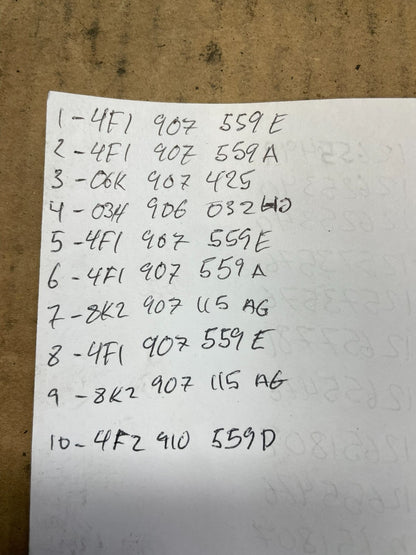 1-4F1 907 559E
2-4F1 907 559A
3-06K 907 425
4-03H 906 032
5-4F1 907 559E
6-4F1 907 559A
7-8K2 907 115 AG
8-4F1 907 559E
9-8K2 907 115 AG
10-4F2 910 559D